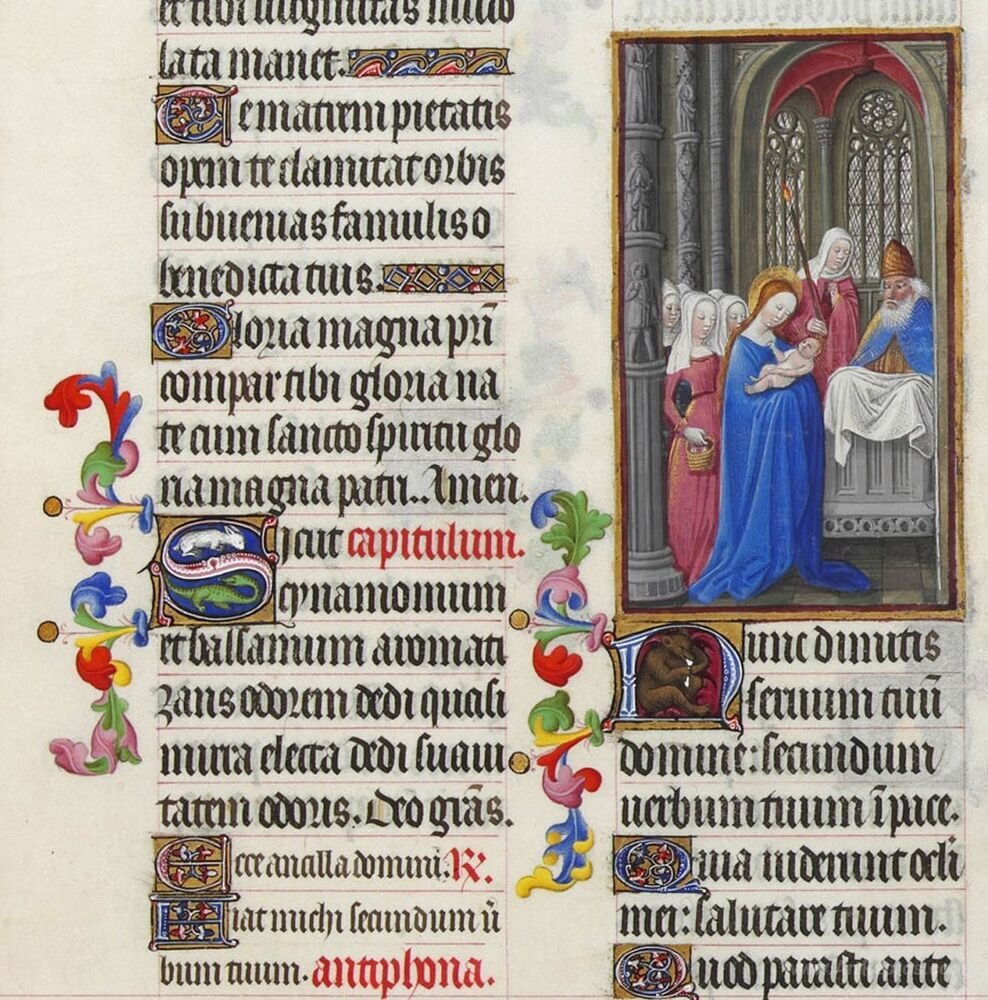 et tibi uirginitas inuio
lata manet.
Te matrem pietatis
opem te clamitat orbis
subuenias famulis o
benedicta tuis.
Gloria magna pr̄i
compar tibi gloria na
te cum sancto spiritu glo
ria magna patri. Amen.
Sicut capitulum.
cynamomum
et balsamum aromati
zans odorem dedi quasi
mirra electa dedi suaui
tatem odoris. Deo gr̄as.
Ecce ancilla domini. R̸.
Fiat michi secundum ū
bum tuum. antiphona.
Nunc dimitis
seruum tuū
domine: secundum
uerbum tuum ī pace.
Quia uiderunt oculi
mei: salutare tuum.
Quod parasti ante